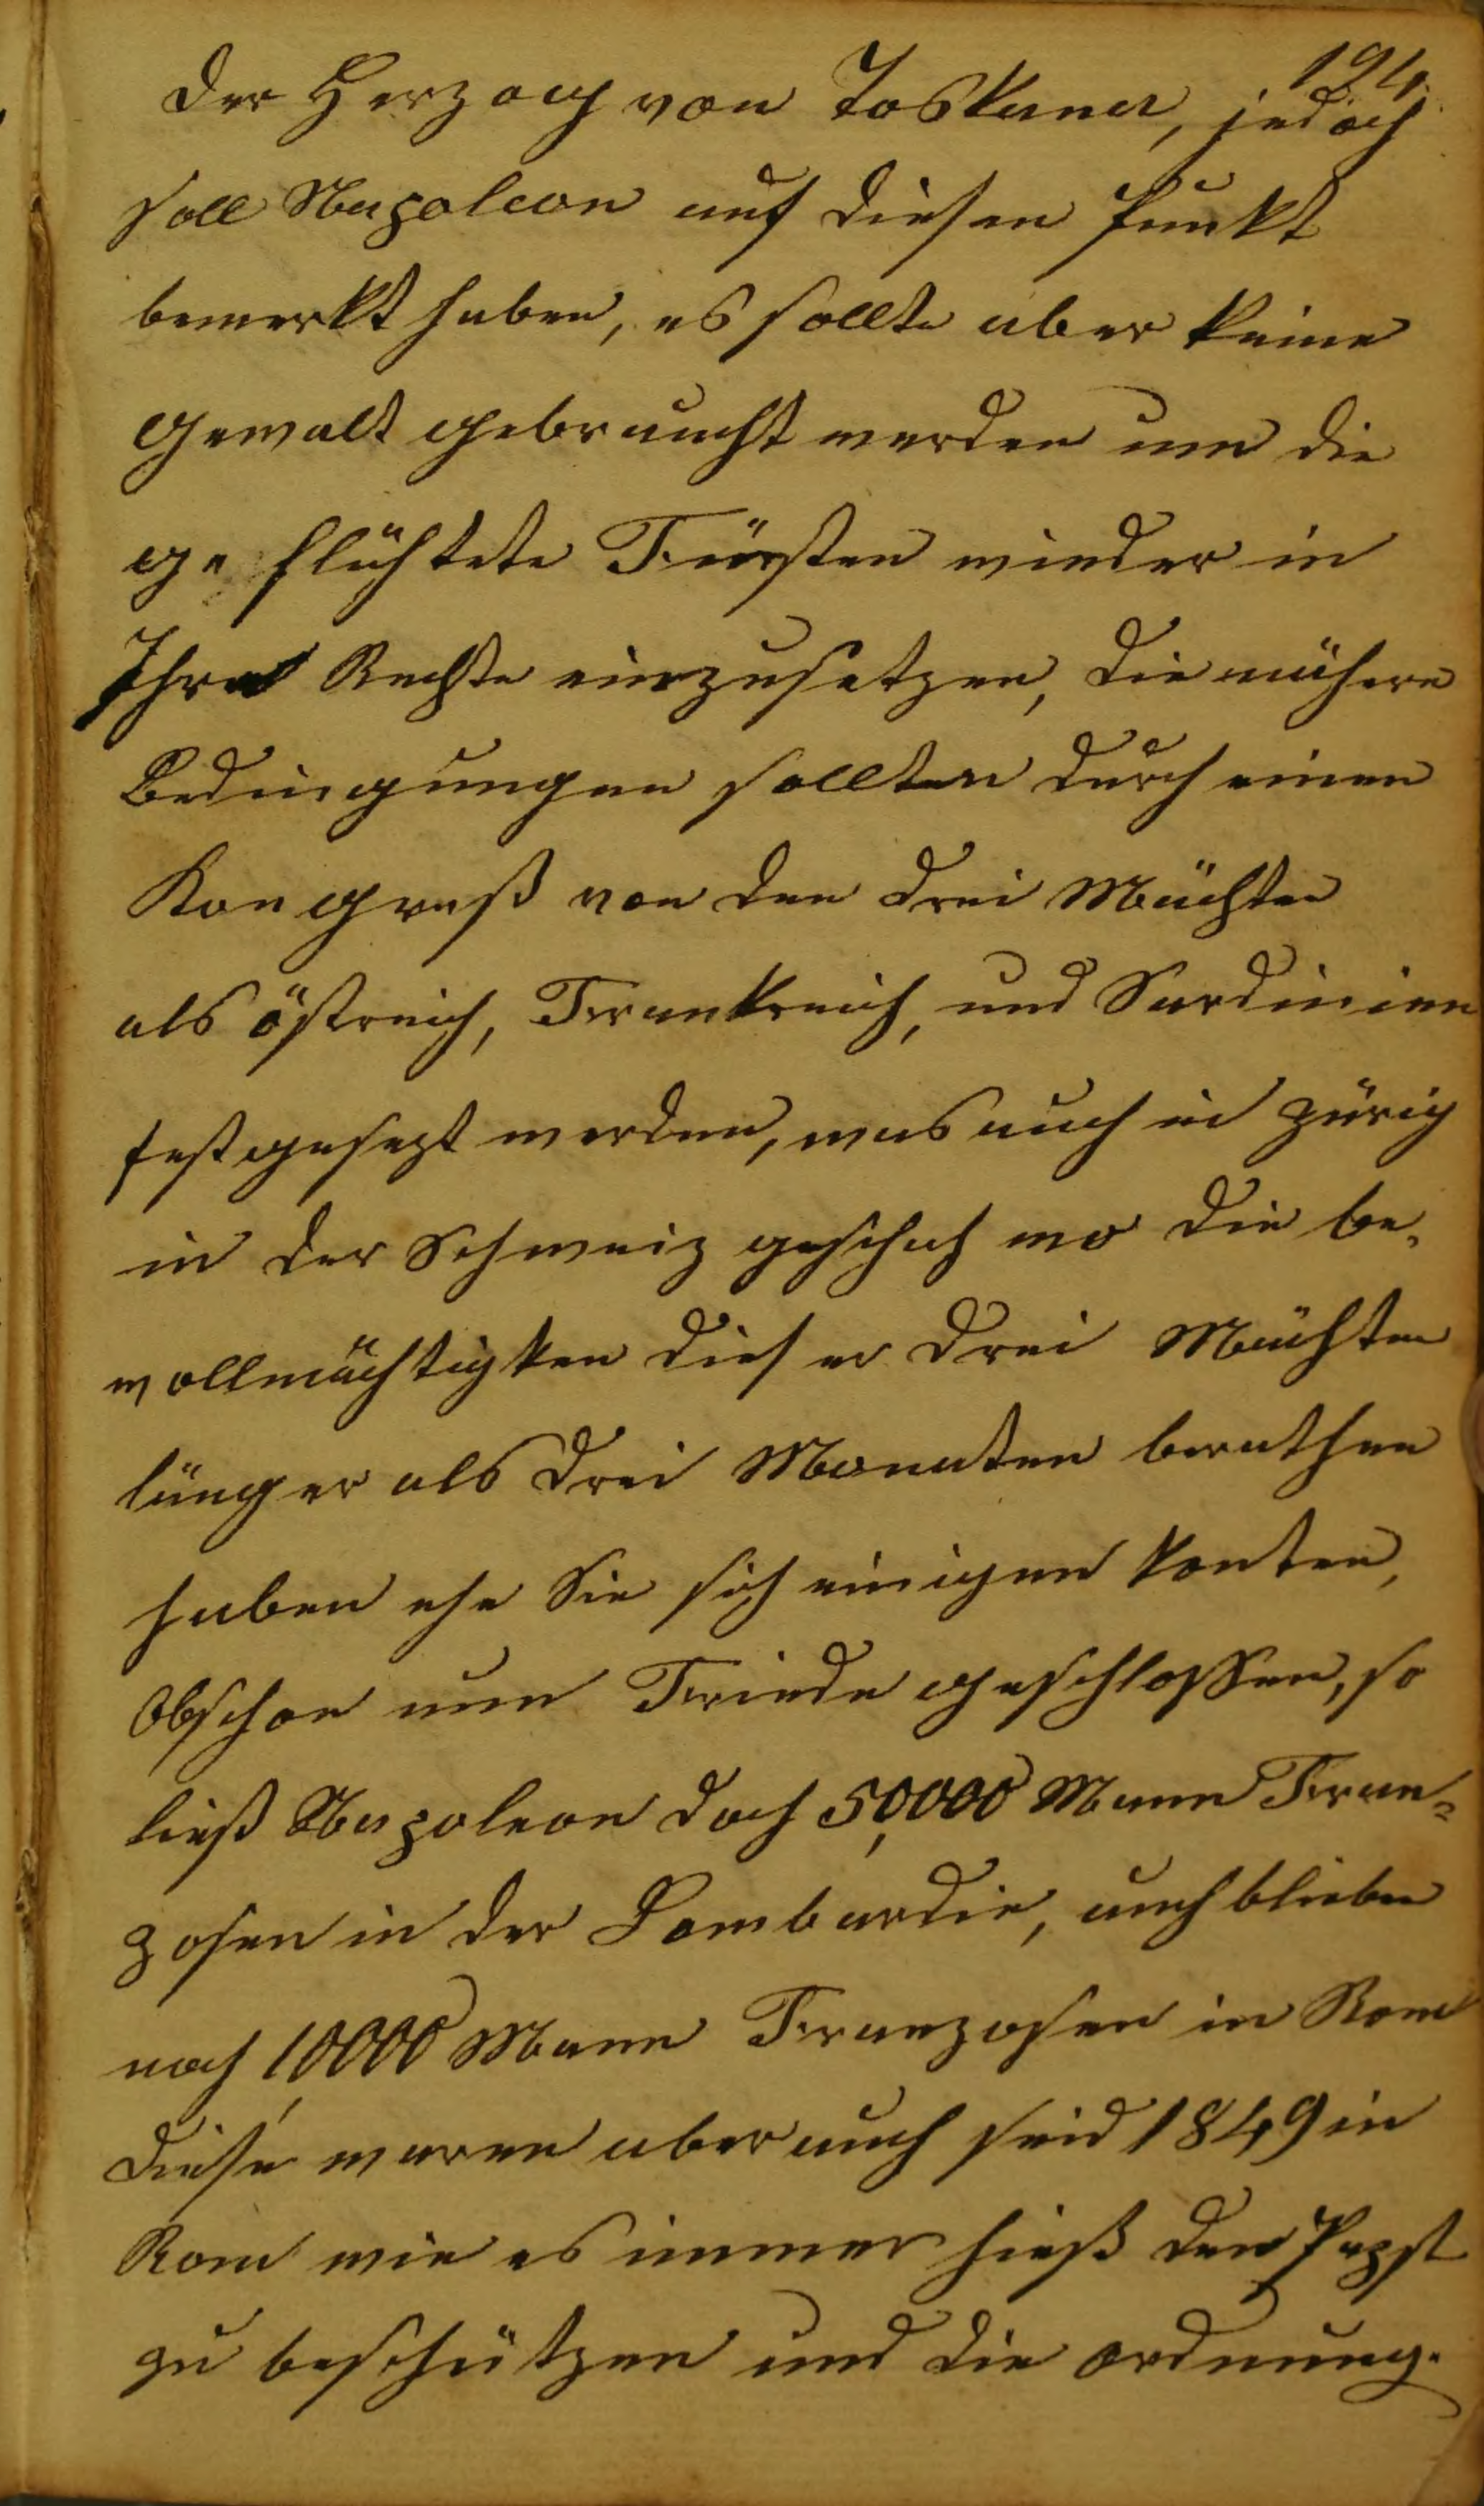 124.
der Herzog von Toskana, jedoch
soll Napoleon auf diesen Punkt
bemerkt haben, es sollte aber keine
Gewalt gebraucht werden um die
ge flüchtete Fürsten wieder in
Ihre Rechte einzusetzen, die nähern
Bedingungen sollten durch einen
Kongreß von den drei Mächten
als östreich, Frankreich, und Sardinien
festgesezt werden, was auch in Zürig
in der Schweiz geschah wo die be„
vollmächtigten dieser drei Mächten
länger als drei Monaten berathen
haben ehe Sie sich einigen konten,
Obschon nun Friede geschlossen, so
ließ Napoleon doch 50,000 Mann Fran¬
zosen in der Lombardie, auch blieben
noch 10,000 Mann Franzosen in Rom
diese waren aber auch seid 1849 in
Rom wie es immer hieß den Papst
zu beschützen und die ordnung.